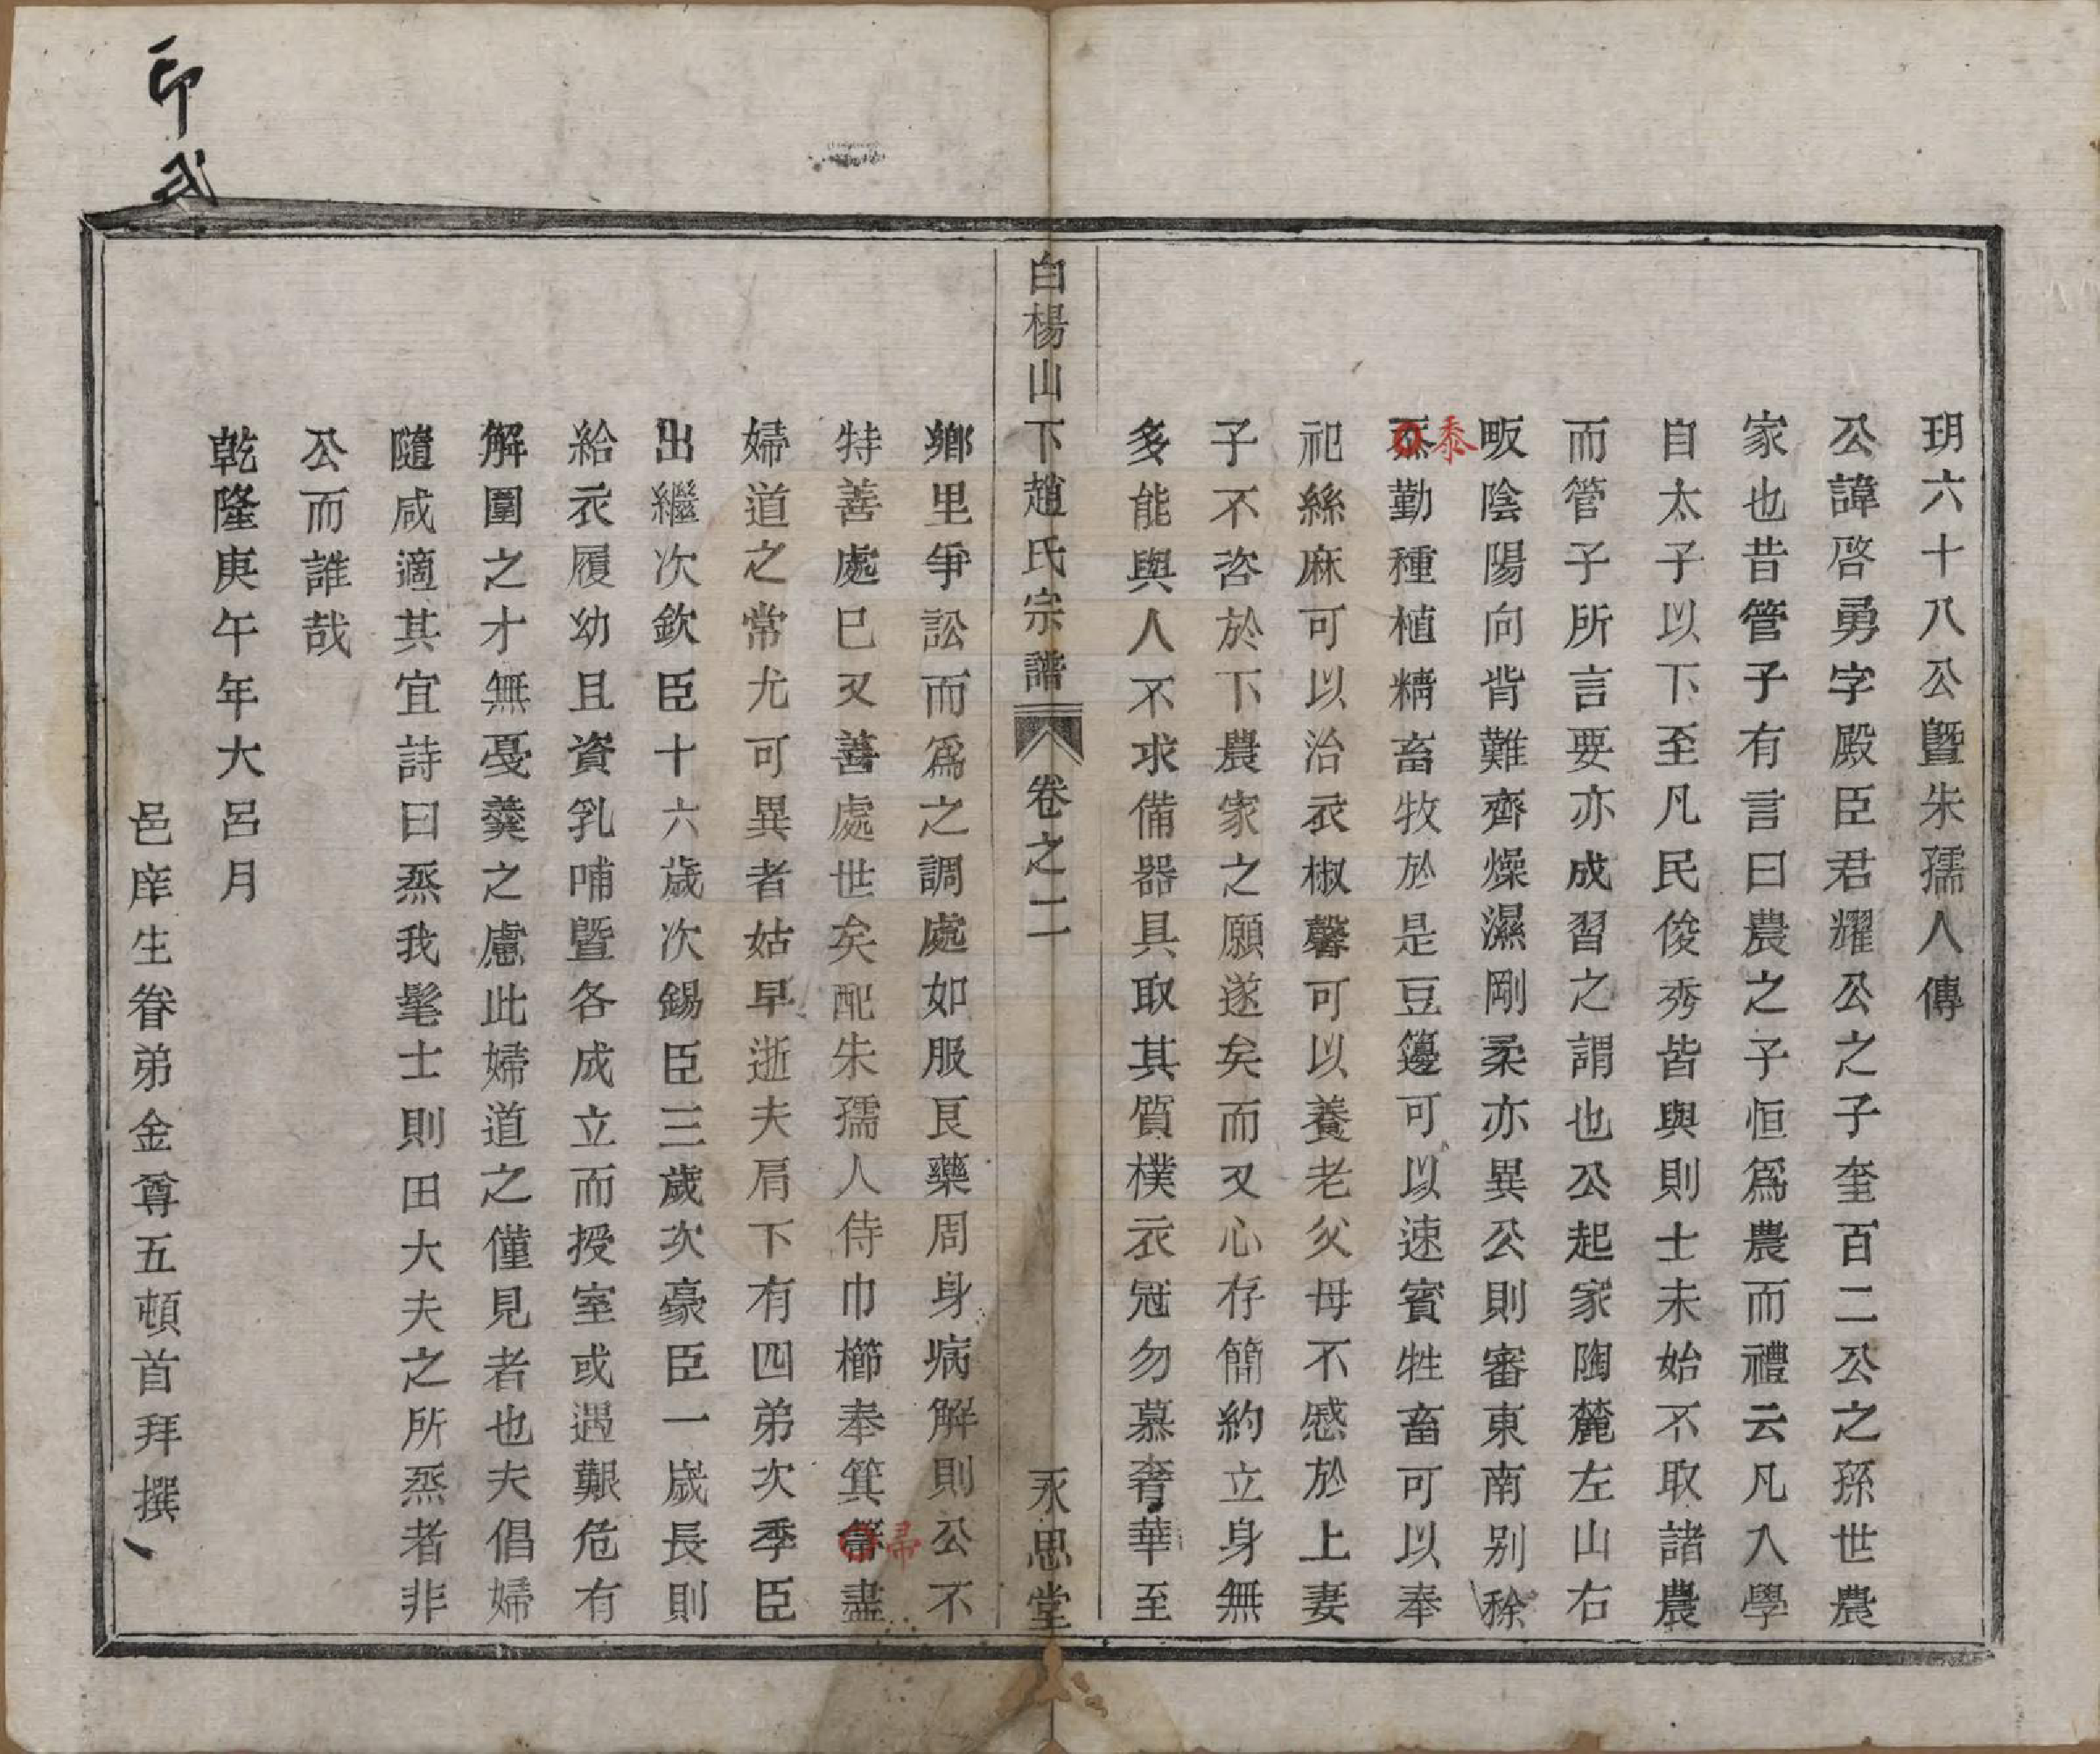 玥六十八公暨朱孺人傳
公諱啓勇字殿臣君耀公之子奎百二公之孫世農
家也昔管子有言曰農之子恒爲農而禮云凡入學
自太子以下至凡民俊秀皆與則士未始不取諸農
而管子所言要亦成習之謂也公起家陶麓左山右
畈陰陽向背難齊燥濕剛柔亦異公則審東南别稌
黍勤種植精畜牧於是豆籩可以速賓牲畜可以奉
祀絲麻可以治衣椒馨可以養老父母不慼於上妻
子不咨於下農家之願遂矣而又心存簡約立身無
多能與人不求備器具取其質樸衣冠勿慕奢華至
白楊山下趙氏宗譜 卷之二 永思堂
鄉里爭訟而爲之調處如服良藥周身病解則公不
特善處已又善處世矣配朱孺人侍巾櫛奉箕帚盡
婦道之常尤可異者姑早逝夫肩下有四弟次季臣
出繼次欽臣十六歲次錫臣三歲次豪臣一歲長則
給衣履幼且資乳哺暨各成立而授室或遇艱危有
解圍之才無戞羹之慮此婦道之僅見者也夫倡婦
隨咸適其宜詩曰烝我髦士則田大夫之所烝者非
公而誰哉
乾隆庚午年大呂月
邑庠生眷弟金尊五頓首拜撰